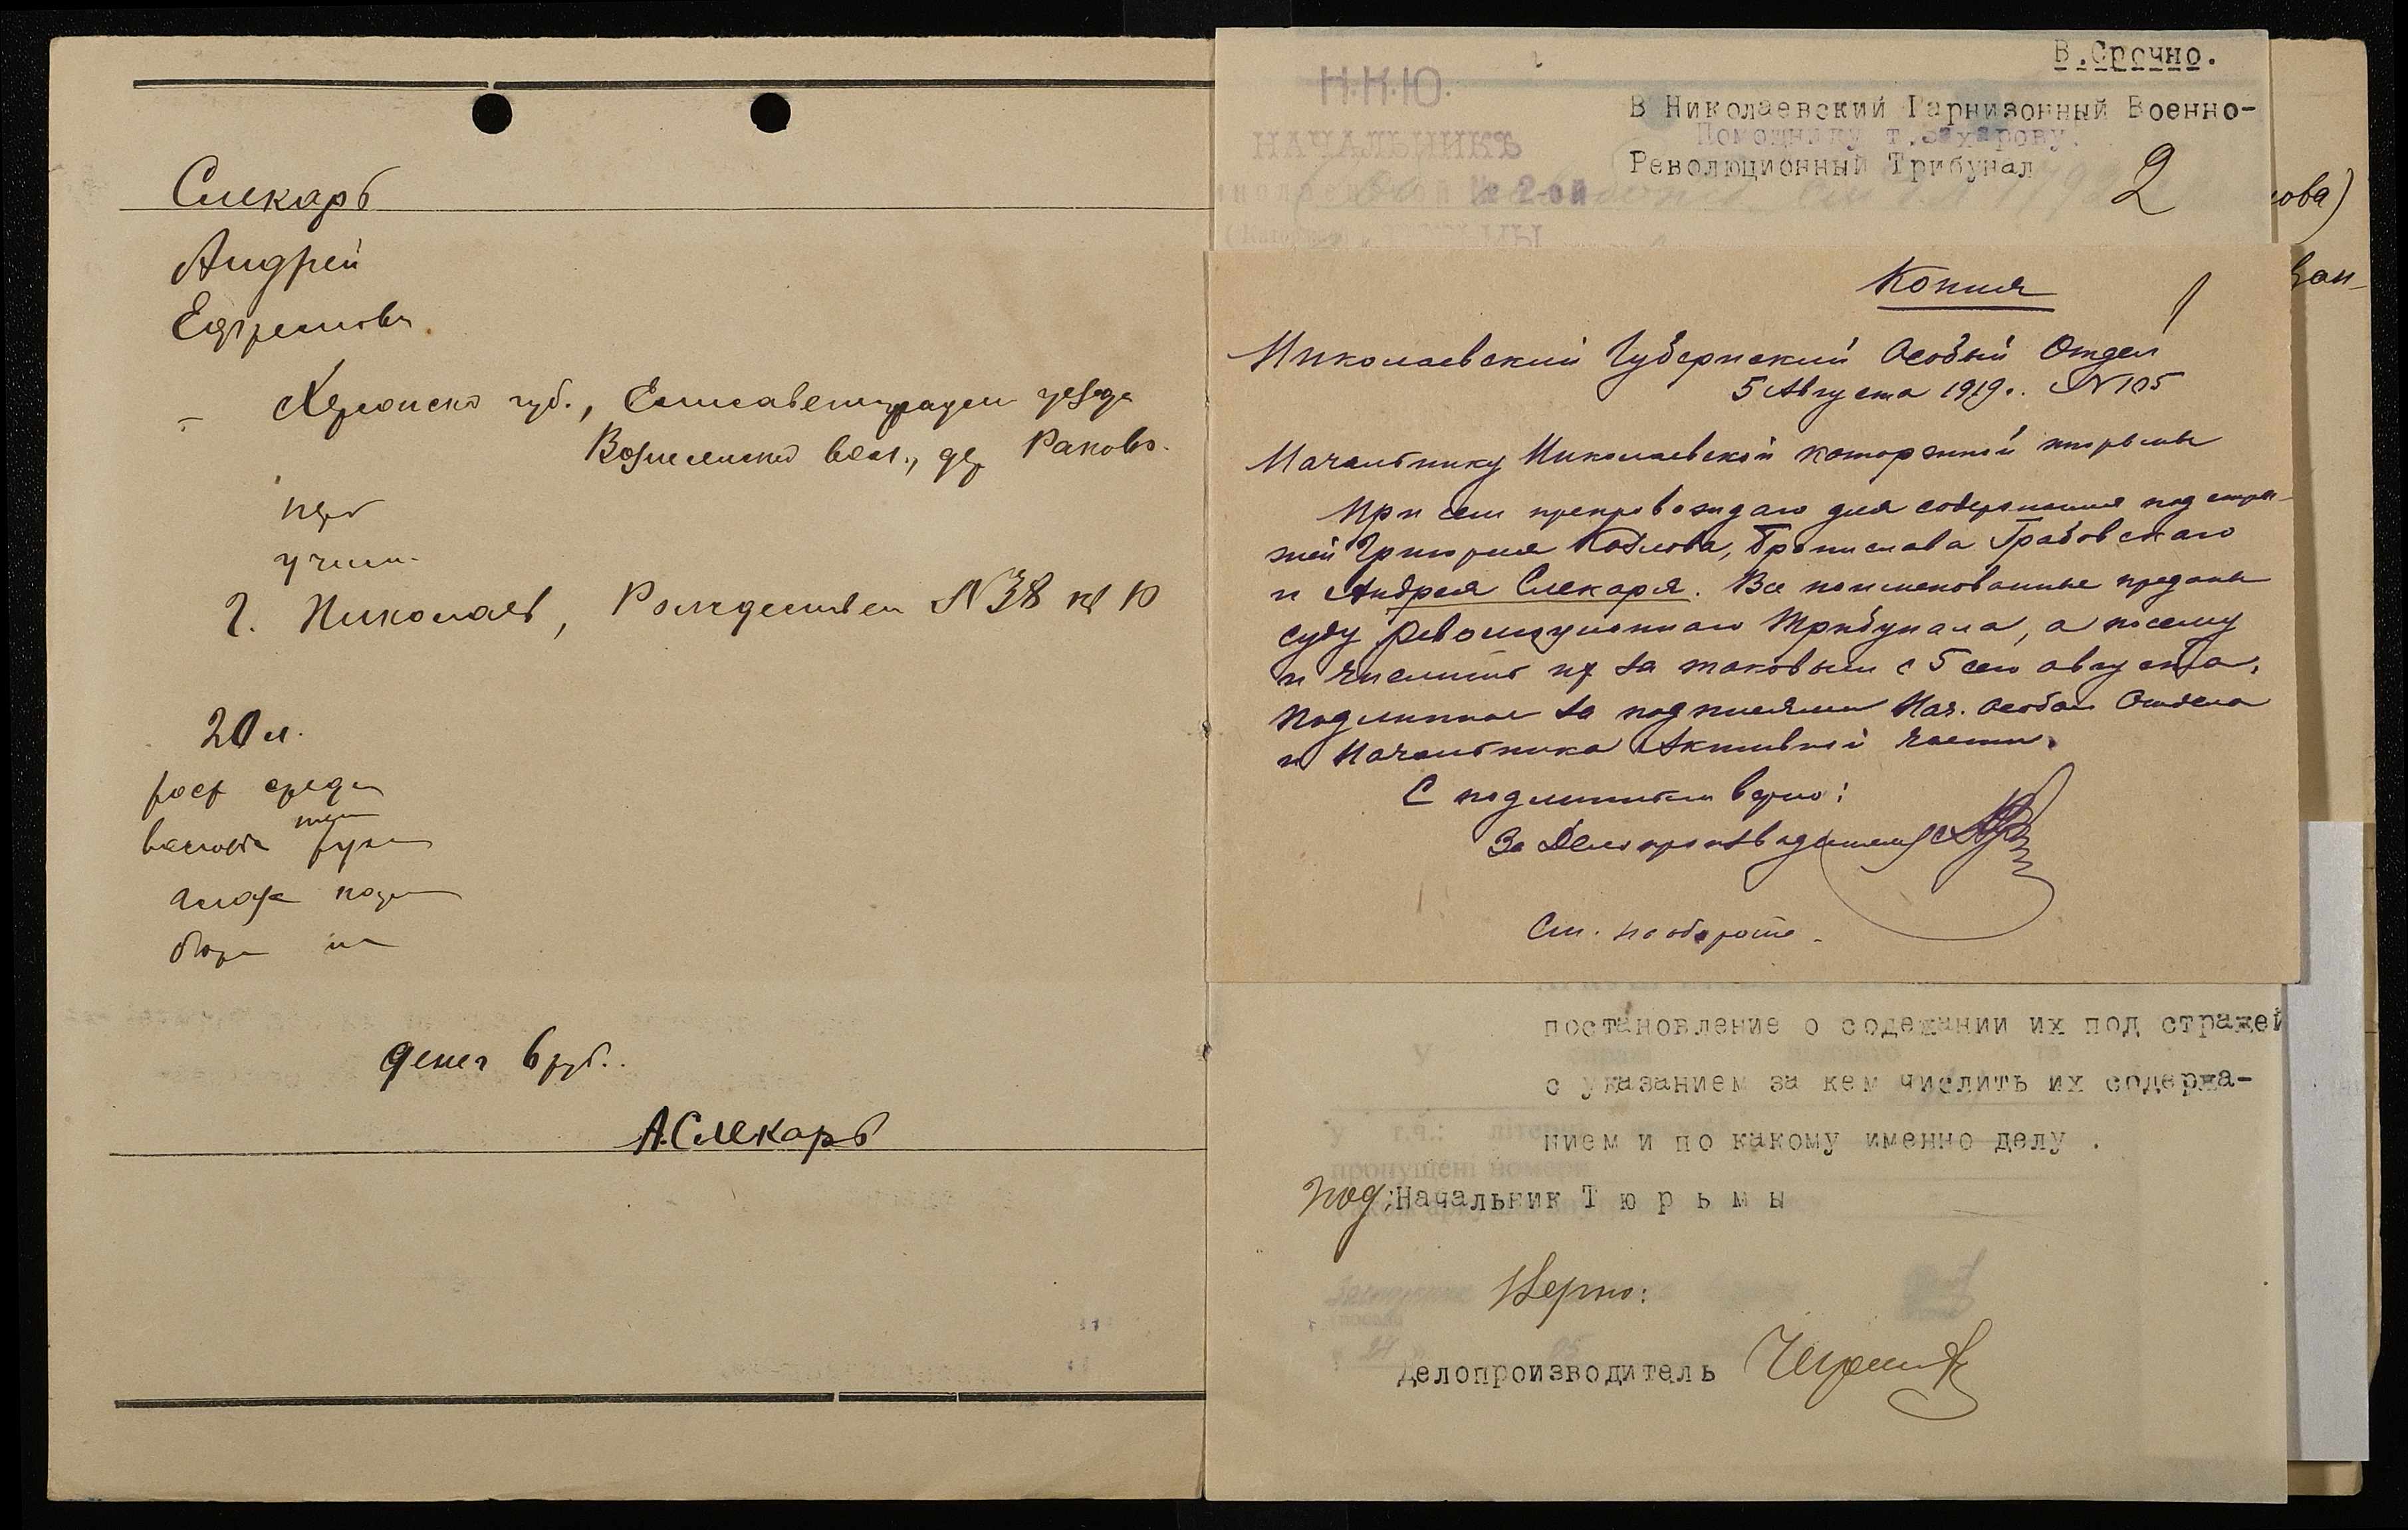 Слекарь
Андрей
Ефремовъ.
Херсонско губ., Елисаветград уезда
Вознесенско вол., д. Раково.
учили.
Г. Николаев, Рождествен № 38 кв 10
20 л.
рост средн
волоса темн русы
глаза
денег 6 руб..
А.Слекарь
В.Срочно.
Н.К.Ю.
В Николаевский Гарнизонный Военно-
НАЧАЛЬНИКЪ
Помощнику т.Захарову.
Революционный Трибунал
№ 2-ой
2
ова)
Копия
Николаевский Губернский Особый Отдел
5 Августа 1919г. № 105
Начальнику Николаевской каторжной тюрьмы
При сем препровождаю для содержания под стра-
жей Григория Козлова, Бронислава Грабовскаго
и Андрея Слекаря. Все поименованные преданы
суду Революционнаго Трибунала, а посему
и числить их за таковым с 5 сего августа.
Подлинное за подписями Нач. Особаго Отдела
и Начальника Активной части.
С подлинным верно:
За Делопроизводителя
См. на обороте.
постановление о содежании их под стражей
с указанием за кем числить их содержа-
нием и по какому именно делу .
пропущені номери
под: Начальник Т ю р ь м ы
Верно:
Делопроизводитель